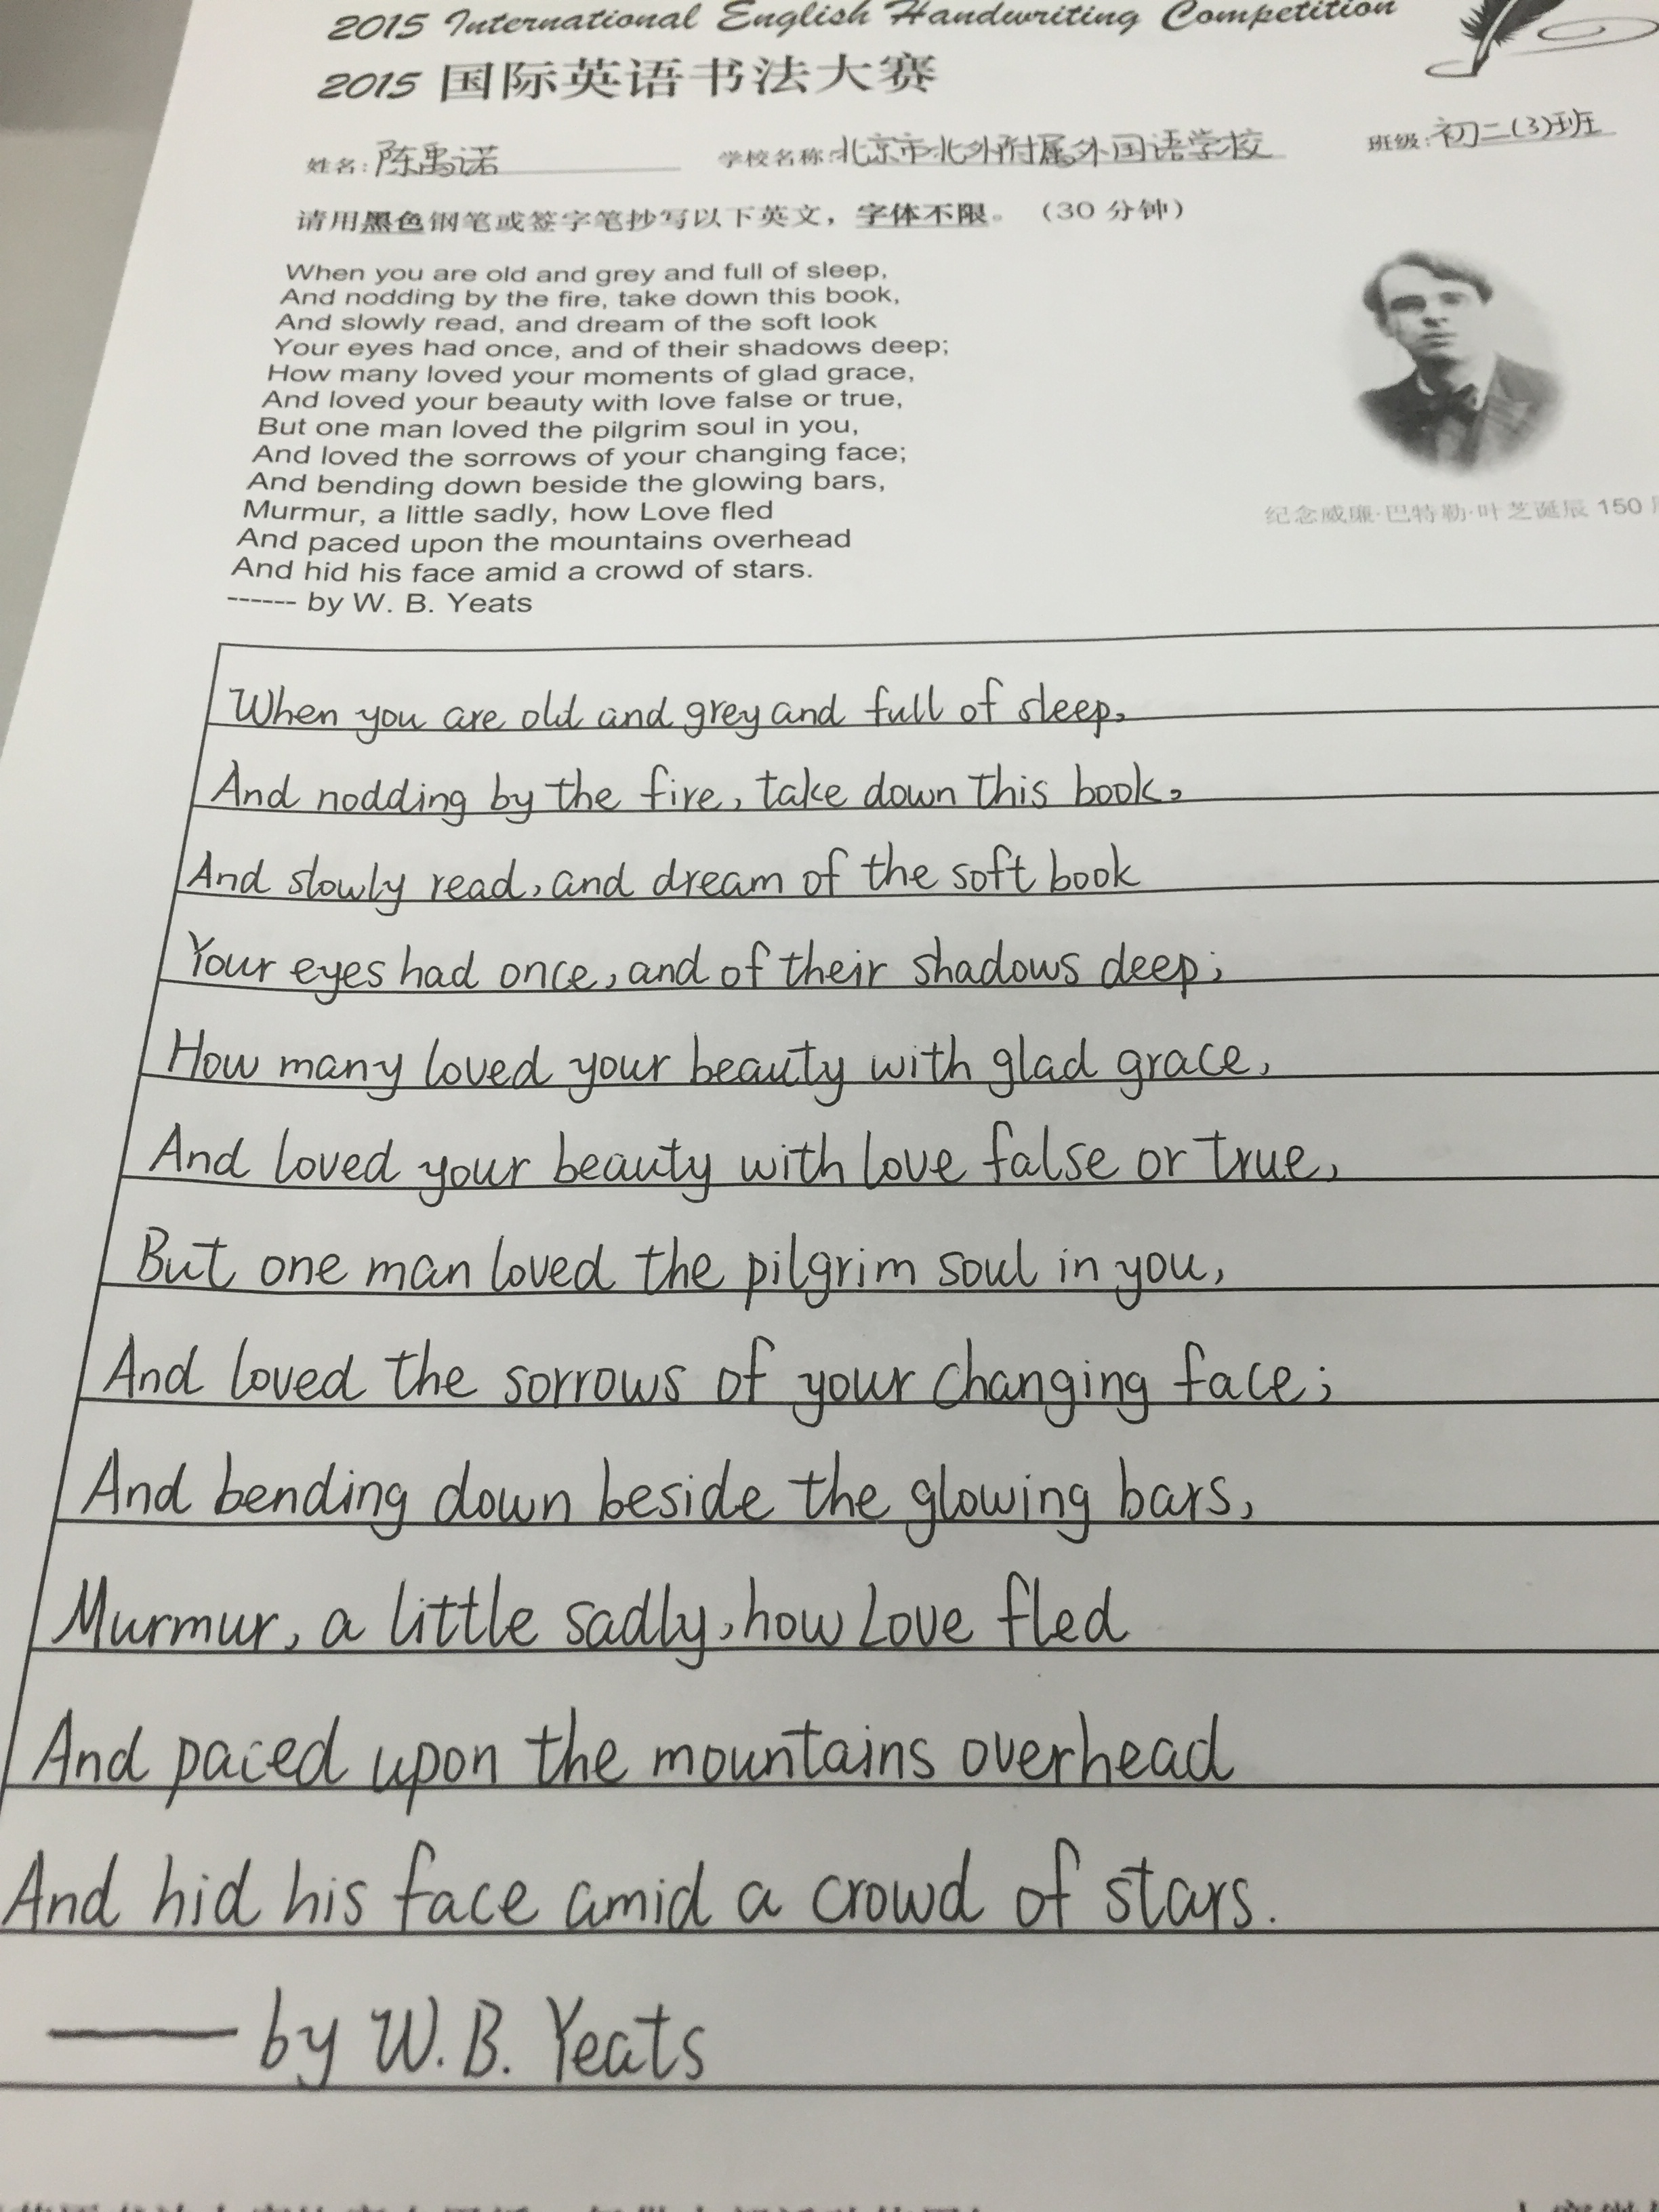 2015 International English Handwriting Competition
2015 国际英语书法大赛
姓名: 陈禹诺 学校名称: 北京市北外附属外国语学校 班级: 初二(3)班
请用黑色钢笔或签字笔抄写以下英文，字体不限。（30 分钟）
When you are old and grey and full of sleep,
And nodding by the fire, take down this book,
And slowly read, and dream of the soft look
Your eyes had once, and of their shadows deep;
How many loved your moments of glad grace,
And loved your beauty with love false or true,
But one man loved the pilgrim soul in you,
And loved the sorrows of your changing face;
And bending down beside the glowing bars,
Murmur, a little sadly, how Love fled
And paced upon the mountains overhead
And hid his face amid a crowd of stars.
------ by W. B. Yeats
纪念威廉·巴特勒·叶芝诞辰 150
When you are old and grey and full of sleep,
And nodding by the fire, take down this book,
And slowly read, and dream of the soft book
Your eyes had once, and of their shadows deep;
How many loved your beauty with glad grace,
And loved your beauty with love false or true,
But one man loved the pilgrim soul in you,
And loved the sorrows of your changing face;
And bending down beside the glowing bars,
Murmur, a little sadly, how Love fled
And paced upon the mountains overhead
And hid his face amid a crowd of stars.
—— by W. B. Yeats